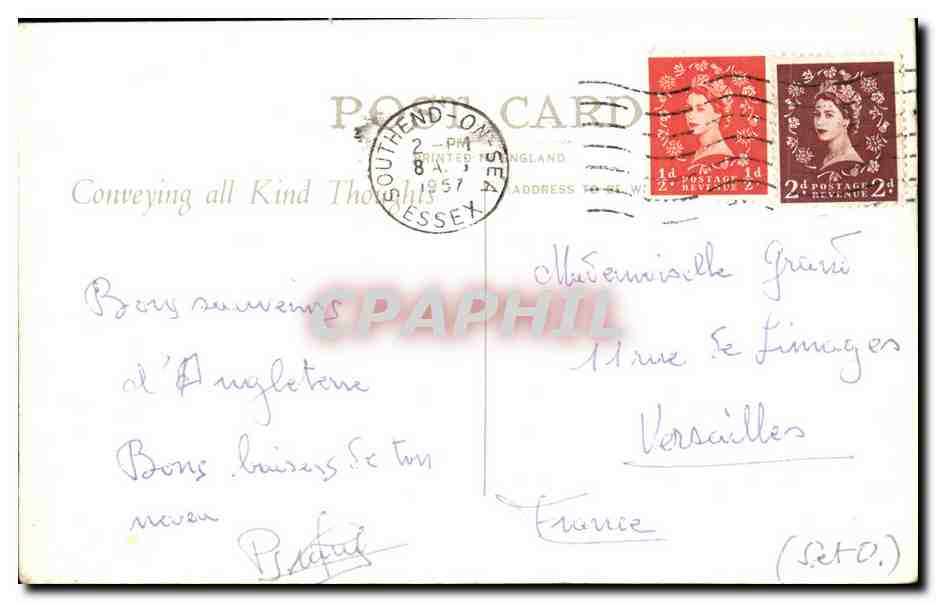 POST CARD
PRINTED IN ENGLAND
Conveying all Kind Thoughts
ADDRESS TO BE W
SOUTHEND-ON-SEA
2 - PM
8
1957
ESSEX
½d POSTAGE REVENUE ½d
2d POSTAGE REVENUE 2d
Bons souvenirs
d'Angleterre
Bons baisers de ton
neveu
Mademoiselle Grand
11 rue de Limoges
Versailles
France
(S. et O.)
CPAPHIL